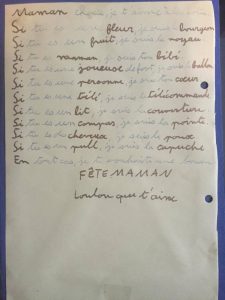 Maman chérie, je t'
Si tu es une fleur, je suis bourgeon
Si tu es un fruit, je suis le noyau
Si tu es maman, je suis ton bébé
Si tu es une joueuse de foot, je suis ballon
Si tu es une personne, je suis ton cœur
Si tu es une télé, je suis la télécommande
Si tu es un lit, je suis la couverture
Si tu es un compas, je suis la pointe
Si tu es du cheveux, je suis le poux
Si tu es un pull, je suis la capuche
En tout cas, je te souhaite une bonne
FÊTE MAMAN
Loulou que t'aime